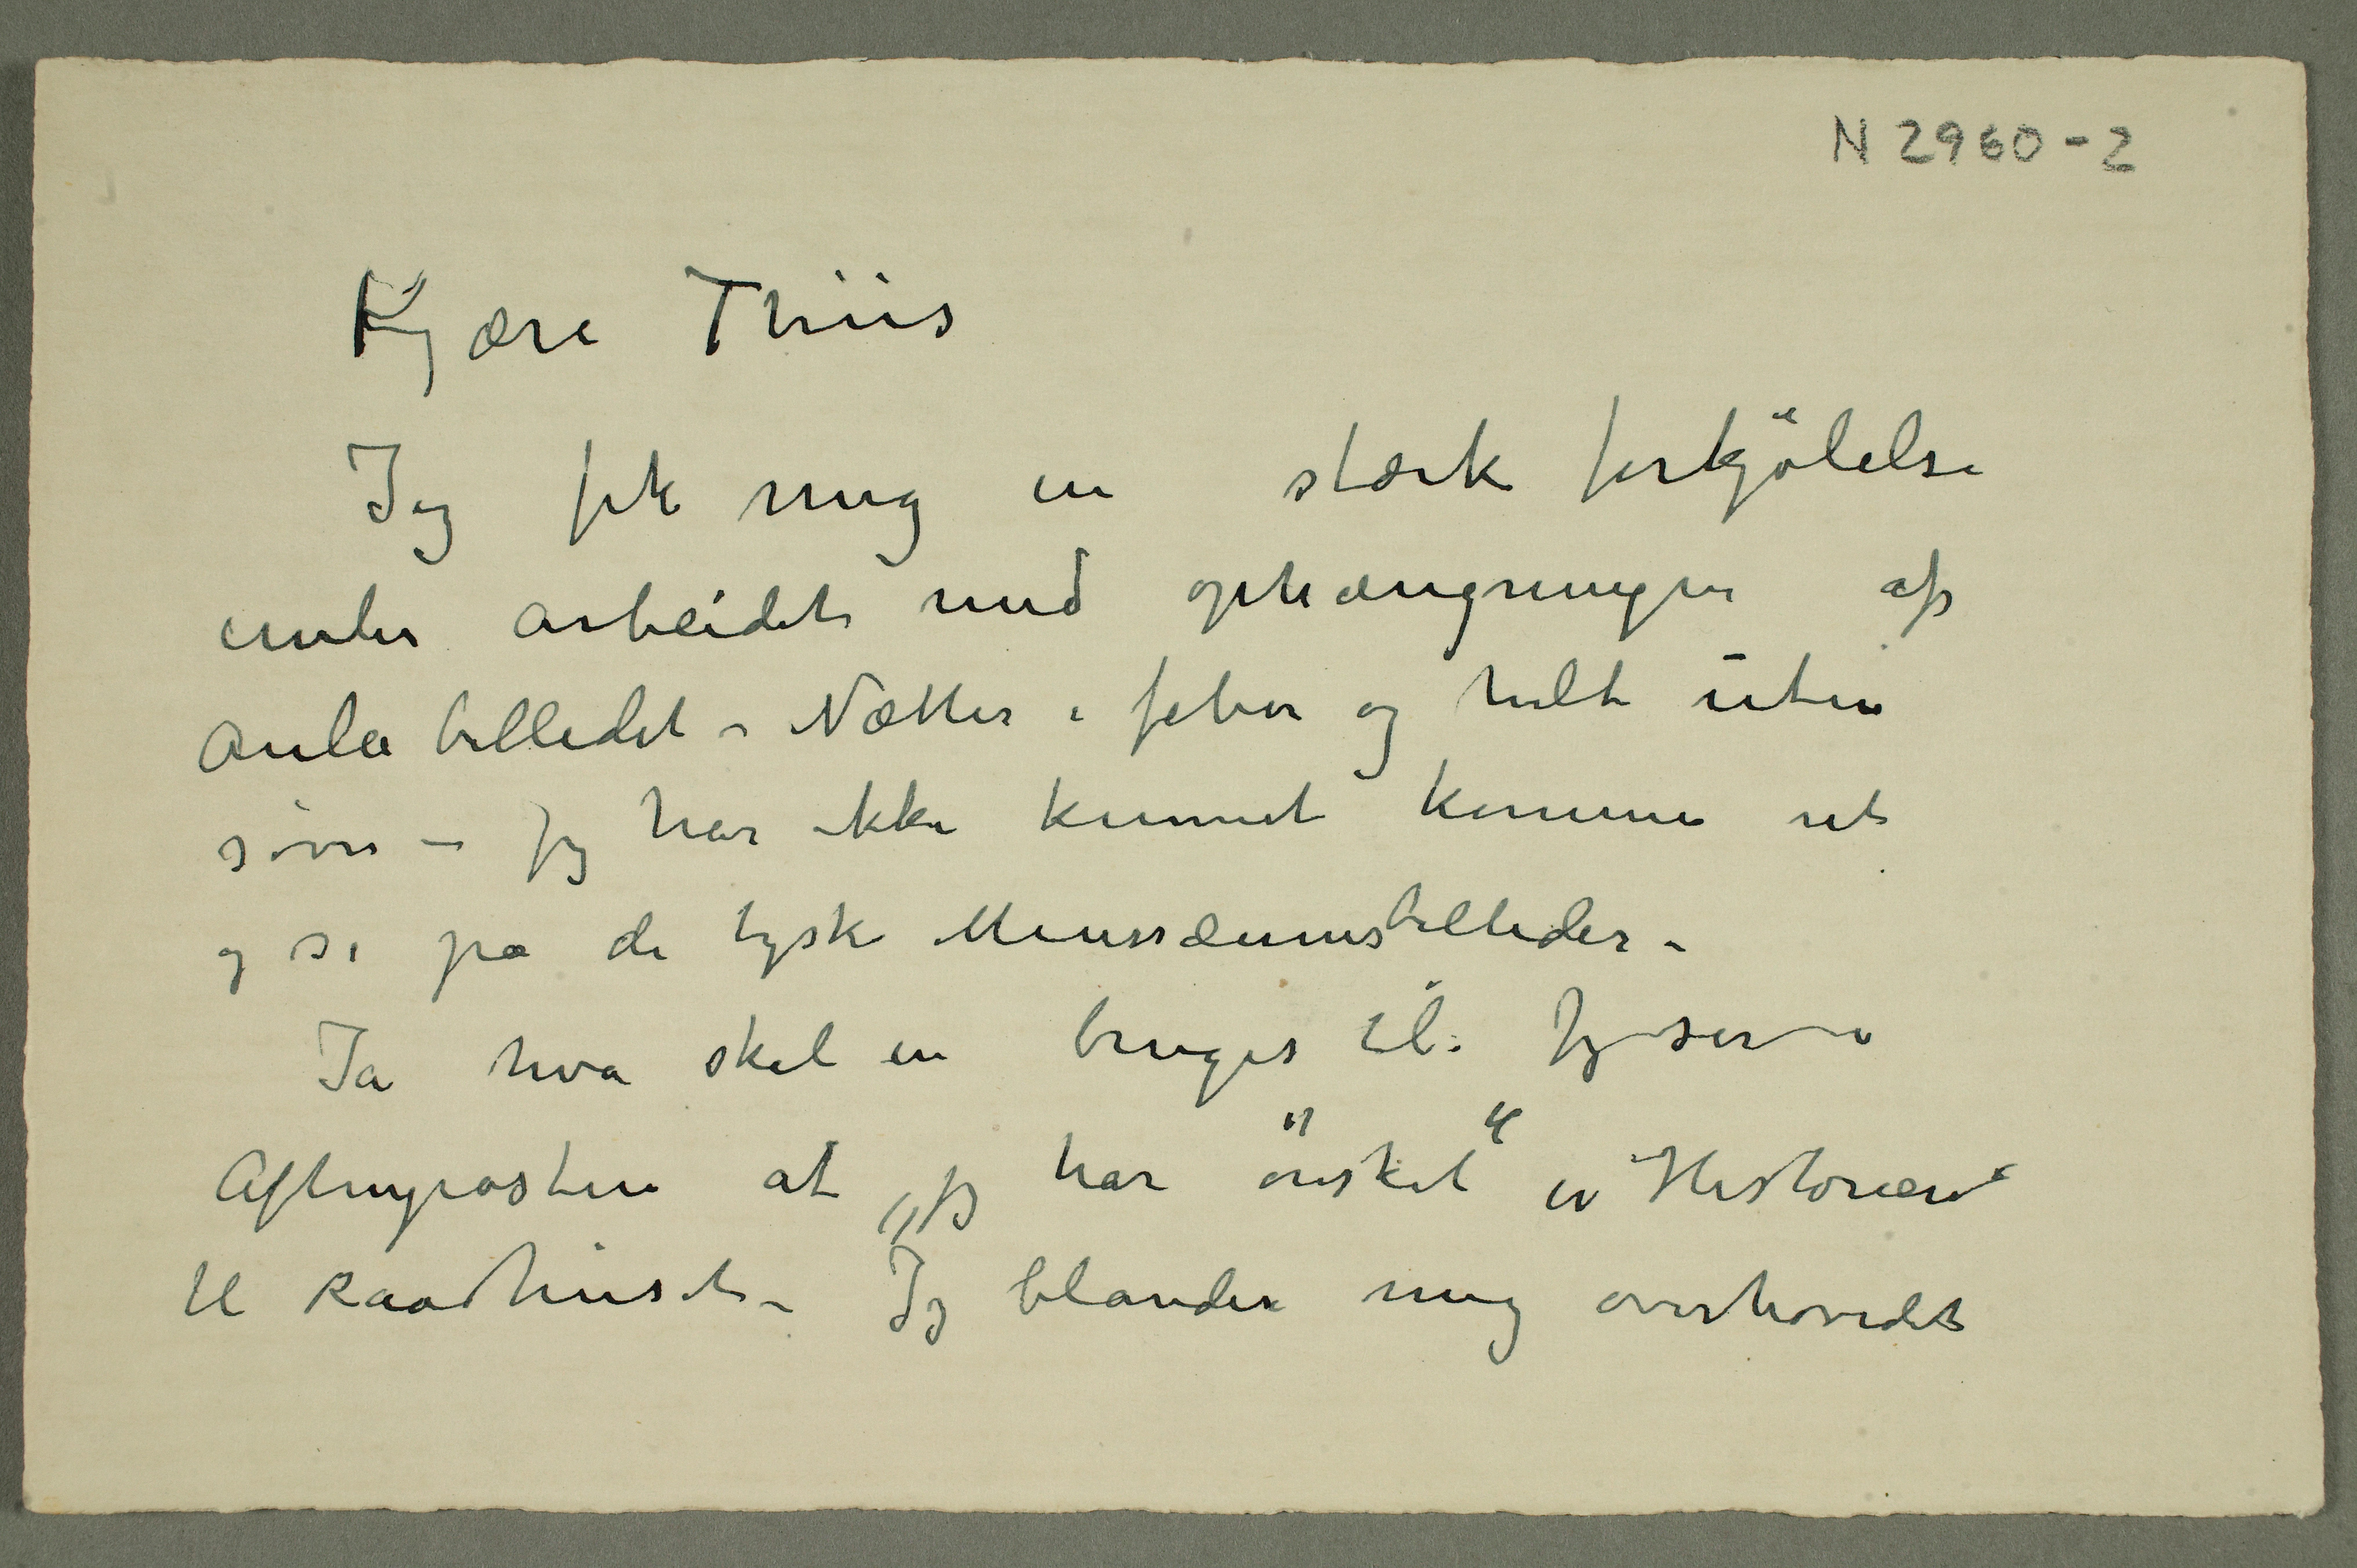 N 2960-2
Kjære Thiis
Jeg fik mig en stærk forkjölelse
under arbeidet med ophængningen af
Aulabilledet – Nætter i feber og helt uten
søvn – Jeg har ikke kunnet komme ut
og se på de tyske Meussæumsbilleder –
Ja hva skal en bruges til: Jeg ser i
Aftenposten at „jeg har "ønsket" er "Historien"
til Raadhuset – Jeg blander mig overhovedet